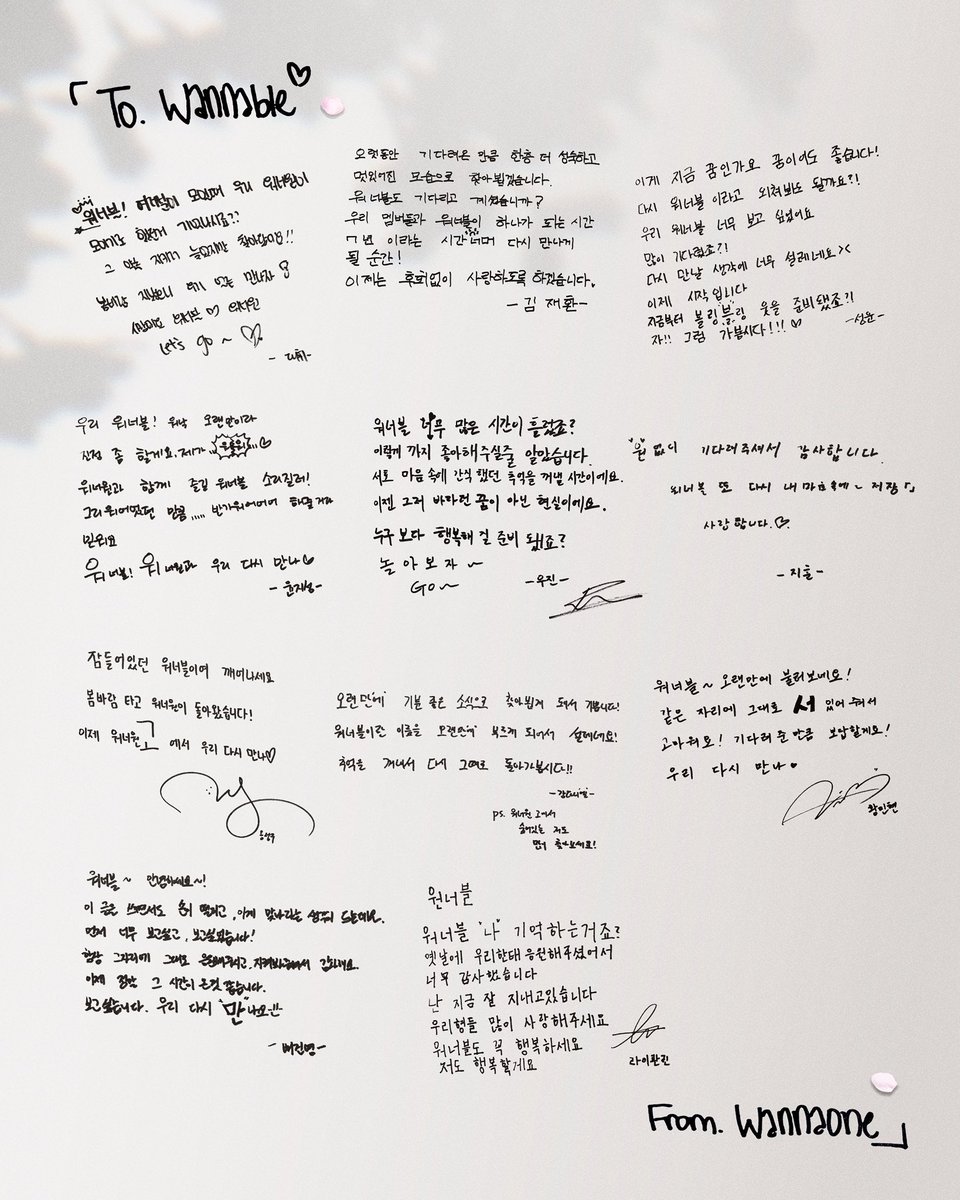 「To. Wannable♡
워너블! 여러분이
우리 워너원이
늦었지만 찾아왔어요!!
만나자
워너블 ♡ 워너원
Let's go ~ ♡
- 대휘-
오랫동안 기다려온 만큼 한층 더 성숙하고
멋있어진 모습으로 찾아뵙겠습니다.
워너블도 기다리고 계셨습니까?
우리 멤버들과 워너블이 하나가 되는 시간
7년 이라는 시간 너머 다시 만나게
될 순간!
이제는 후회없이 사랑하도록 하겠습니다.
- 김재환-
이게 지금 꿈인가요 꿈이어도 좋습니다!
다시 워너블 이라고 외쳐봐도 될까요?!
우리 워너블 너무 보고 싶었어요
많이 기다렸죠?!
다시 만날 생각에 너무 설레네요><
이제 시작 입니다
지금부터 볼링블링 웃을 준비됐죠?!
자!! 그럼 가봅시다!!! ♡
-성운-
우리 워너블! 워낙 오랜만이라
진정 좀 할게요. 제가
워너원과 함께 즐길 워너블 소리질러!
그리워어었던 만큼,,,,, 반가워어어어 하면 거라
믿워요
워너블! 워너원과 우리 다시 만나♡
- 윤지성-
워너블 너무 많은 시간이 흘렀죠?
이렇게 까지 좋아해주실줄 알았습니다.
서로 마음 속에 간직 했던 추억을 꺼낼 시간이에요.
이젠 그저 바라던 꿈이 아닌 현실이에요.
누구 보다 행복해 질 준비 됐죠?
놀 아 보 자 ~
GO~
-우진-
"원"없이 기다려주셔서 감사합니다.
워너블 또 다시 내 마음 속에~ 저장「」
사랑합니다.♡
- 지훈 -
잠들어있던 워너블이여 깨어나세요
봄바람 타고 워너원이 돌아왔습니다!
이제 워너원고 에서 우리 다시 만나♡
옹성우
오랜만에 기분 좋은 소식으로 찾아뵙게 돼서 기쁩니다!
워너블이란 이름을 오랜만에 부르게 되어서 설레네요!
추억을 꺼내서 다시 그때로 돌아가봅시다!!
-강다니엘-
ps. 워너원 고에서
숨어있는 저도
먼저 찾아보세요!
워너블~ 오랜만에 불러보네요!
같은 자리에 그대로 서 있어 줘서
고마워요! 기다려 준 만큼 보답할게요!
우리 다시 만나♥
황민현
워너블~ 안녕하세요~!
이 글을 쓰면서도 손이 떨리고, 이게 맞나라는 생각이 드는데요.
먼저 너무 보고싶고, 보고싶었습니다!
항상 그자리에 그대로 응원해주시고, 지켜봐주셔서 감사해요.
이제 정말 그 시간이 온것 같습니다.
보고싶습니다. 우리 다시 "만"나요!!
- 배진영-
원너블
워너블 "나" 기억하는거죠?
옛날에 우리한테 응원해주셨어서
너무 감사했습니다
난 지금 잘 지내고있습니다
우리형들 많이 사랑해주세요
워너블도 꼭 행복하세요
저도 행복할게요
라이관린
From. Wannaone」